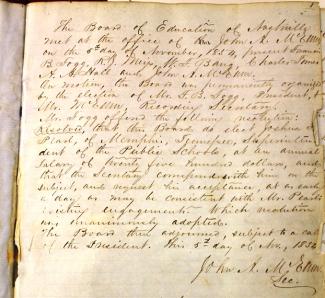 The Board of Education of Nashville
met at the office of John A. McEwen
on the 5th day of November, 1854, present
B. Fogg, R. J. Meigs, W. F. Bang, Charles
A. Hall and John A. McEwen.
On motion the Board was permanently organized
by election of Mr. F. B. Fogg, President,
Mr. McEwen, Recording Secretary.
Mr. Fogg offered the following resolution:
Resolved, that this Board do elect Joshua F.
Pearl, of Memphis, Tennessee, Superinten-
dent of the Public Schools at an annual
salary of twenty five hundred dollars, and
that the Secretary correspond with him on the
subject, and request his acceptance, at as early
a day as may be consistent with Mr. Pearl's
existing engagements. Which resolution
was unanimously adopted.
The Board then adjourned, subject to a call
of the President. This 5th day of Nov. 1854
John A. McEwen
Sec.